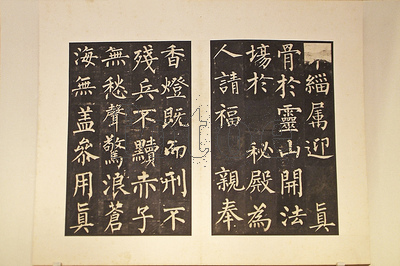 緇属迎 真
骨於靈山開法
場於 秘殿為
人請福 親奉
香燈既而刑不
殘兵不黷赤子
無愁聲驚浪蒼
海無盖參用真